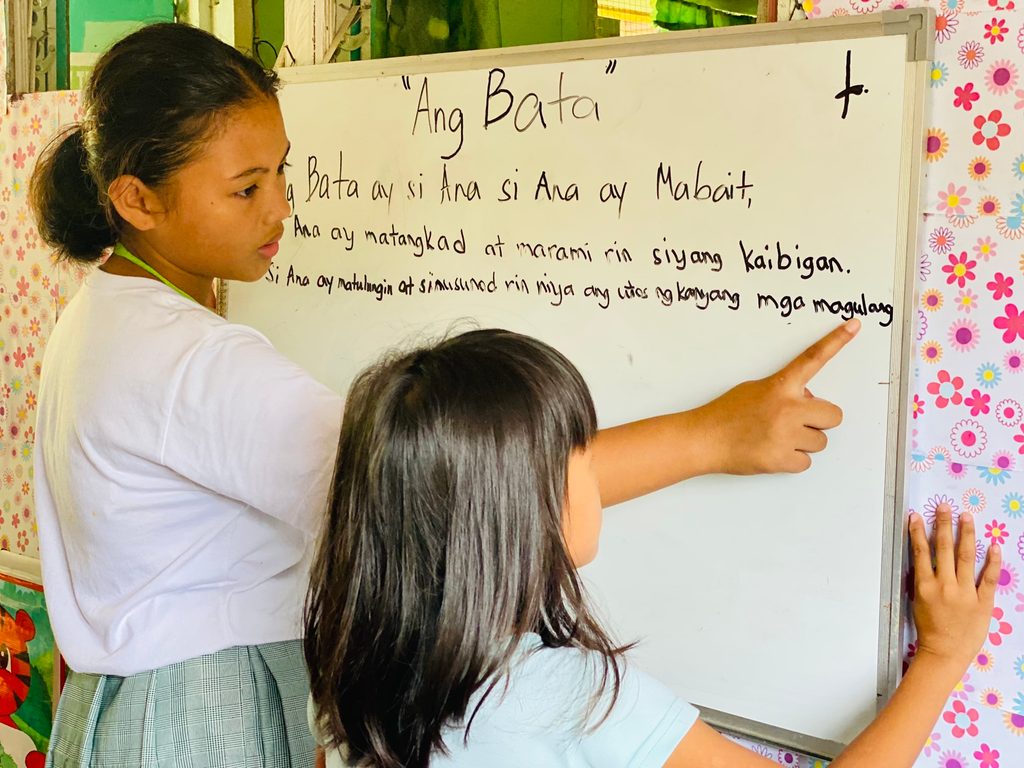 "Ang Bata"
Bata ay si Ana si Ana ay Mabait,
Ana ay matangkad at marami rin siyang kaibigan.
Si Ana ay matulungin at sinusunod rin niya ang utos ng kanyang mga magulang